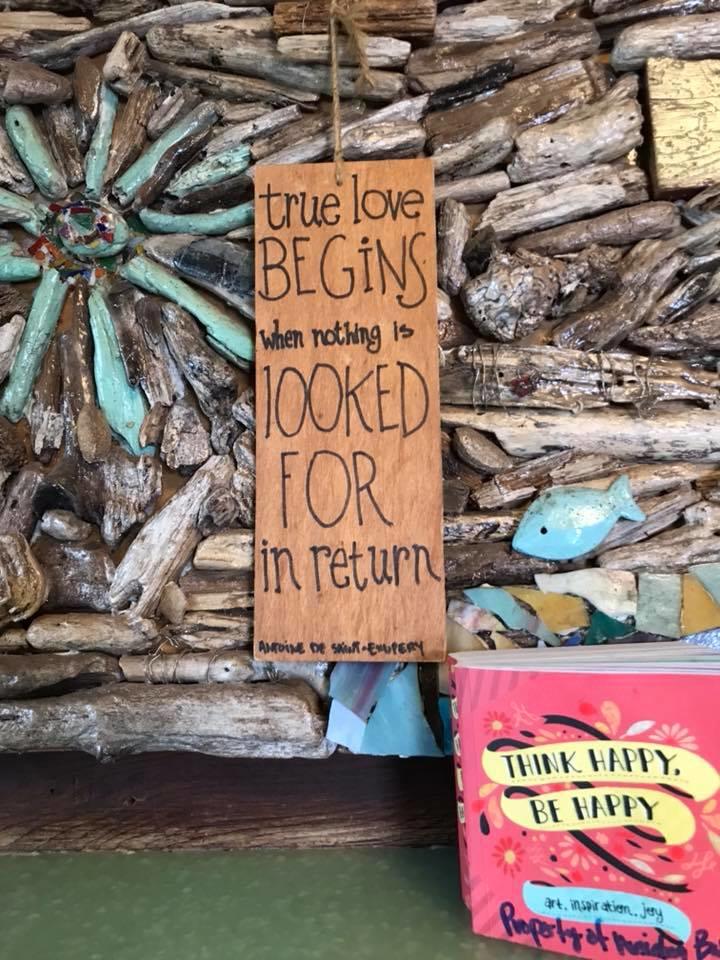 true love
BEGiNS
when nothing is
lOOKED
FOR
in return
ANTOINE DE SAINT-EXUPERY
THINK HAPPY,
BE HAPPY
art. inspiration. joy
Property of